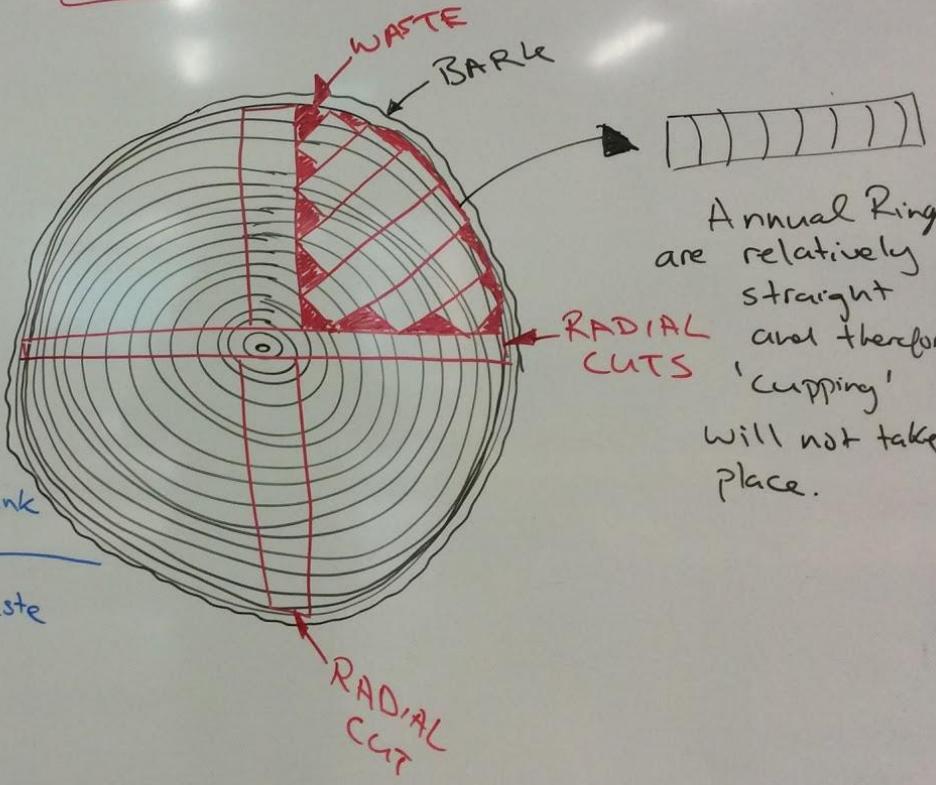 WASTE
BARK
Annual Ring
are relatively
straight
and therefor
'cupping'
will not take
place.
RADIAL
CUTS
nk
ste
RADIAL
CUT